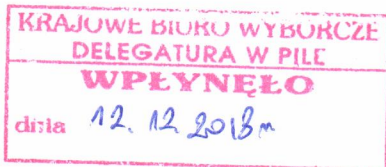 KRAJOWE BIURO WYBORCZE
DELEGATURA W PILE
WPŁYNĘŁO
dnia 12. 12. 2018 r.